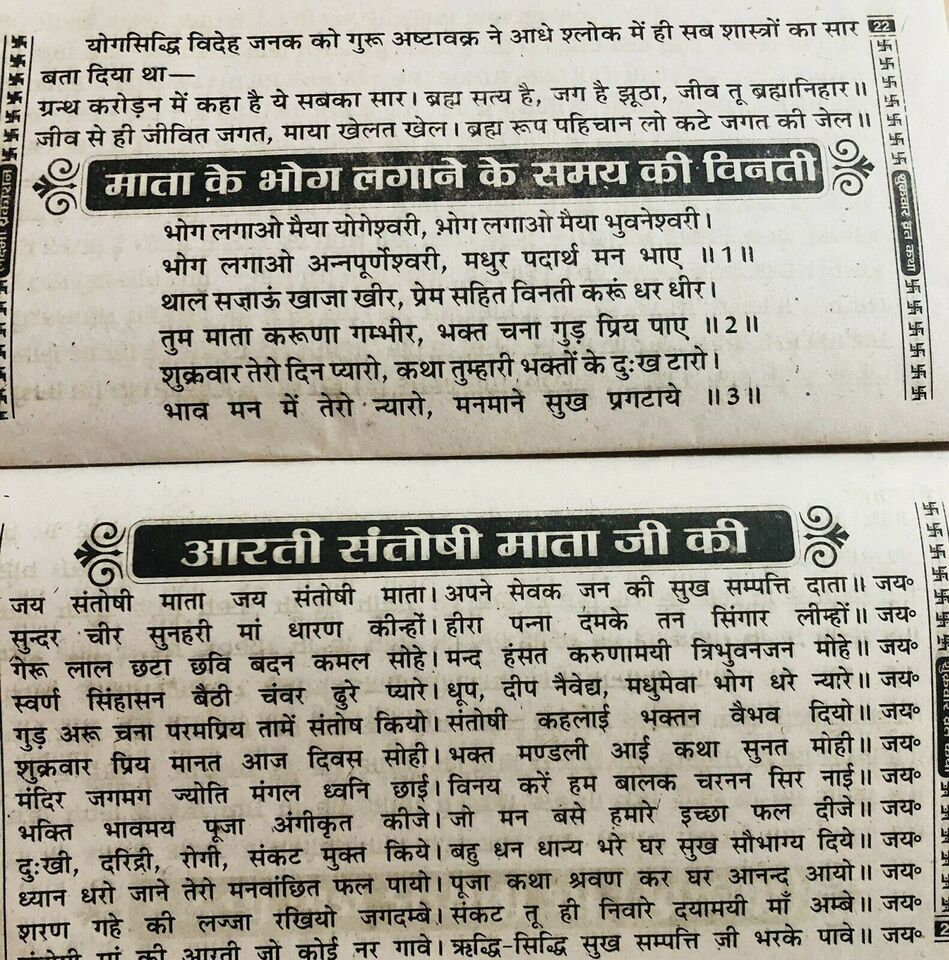 योगसिद्धि विदेह जनक को गुरू अष्टावक्र ने आधे श्लोक में ही सब शास्त्रों का सार
22
बता दिया था—
ग्रन्थ करोड़न में कहा है ये सबका सार। ब्रह्म सत्य है, जग है झूठा, जीव तू ब्रह्मानिहार॥
जीव से ही जीवित जगत, माया खेलत खेल। ब्रह्म रूप पहिचान लो कटे जगत की जेल॥
माता के भोग लगाने के समय की विनती
शुक्रवार व्रत कथा
भोग लगाओ मैया योगेश्वरी, भोग लगाओ मैया भुवनेश्वरी।
भोग लगाओ अन्नपूर्णेश्वरी, मधुर पदार्थ मन भाए ॥1॥
थाल सजाऊं खाजा खीर, प्रेम सहित विनती करूं धर धीर।
तुम माता करूणा गम्भीर, भक्त चना गुड़ प्रिय पाए ॥2॥
शुक्रवार तेरो दिन प्यारो, कथा तुम्हारी भक्तों के दुःख टारो।
भाव मन में तेरो न्यारो, मनमाने सुख प्रगटाये ॥3॥
आरती संतोषी माता जी की
जय संतोषी माता जय संतोषी माता। अपने सेवक जन की सुख सम्पत्ति दाता॥ जय॰
सुन्दर चीर सुनहरी मां धारण कीन्हों। हीरा पन्ना दमके तन सिंगार लीम्हों॥ जय॰
गेरू लाल छटा छवि बदन कमल सोहे। मन्द हंसत करुणामयी त्रिभुवनजन मोहे॥ जय॰
स्वर्ण सिंहासन बैठी चंवर ढुरे प्यारे। धूप, दीप नैवेद्य, मधुमेवा भोग धरे न्यारे॥ जय॰
गुड़ अरू चना परमप्रिय तामें संतोष कियो। संतोषी कहलाई भक्तन वैभव दियो॥ जय॰
शुक्रवार प्रिय मानत आज दिवस सोही। भक्त मण्डली आई कथा सुनत मोही॥ जय॰
मंदिर जगमग ज्योति मंगल ध्वनि छाई। विनय करें हम बालक चरनन सिर नाई॥ जय॰
भक्ति भावमय पूजा अंगीकृत कीजे। जो मन बसे हमारे इच्छा फल दीजे॥ जय॰
दुःखी, दरिद्री, रोगी, संकट मुक्त किये। बहु धन धान्य भरे घर सुख सौभाग्य दिये॥ जय॰
ध्यान धरो जाने तेरो मनवांछित फल पायो। पूजा कथा श्रवण कर घर आनन्द आयो॥ जय॰
शरण गहे की लज्जा रखियो जगदम्बे। संकट तू ही निवारे दयामयी माँ अम्बे॥ जय॰
संतोषी मां की आरती जो कोई नर गावे। ऋद्धि-सिद्धि सुख सम्पत्ति जी भरके पावे॥ जय॰